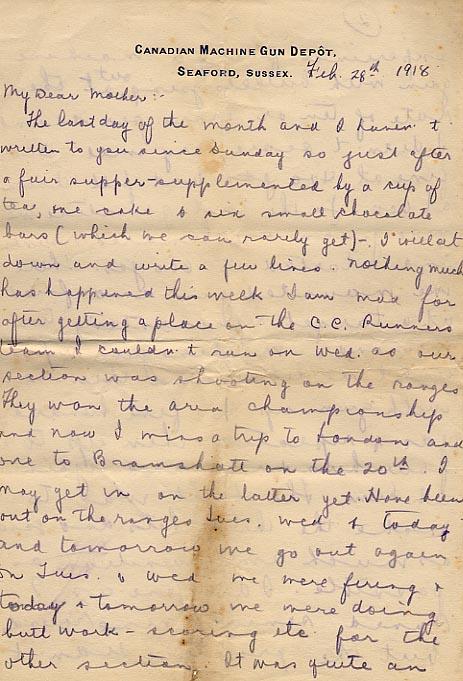 CANADIAN MACHINE GUN DEPÔT,
SEAFORD, SUSSEX. Feb. 28th 1918
My Dear Mother:-
The last day of the month and I haven't
written to you since Sunday so just after
a fair supper-supplemented by a cup of
tea, one cake & six small chocolate
bars (which we can rarely get)-. I will sit
down and write a few lines. Nothing much
has happened this week I am mad for
after getting a place on the C.C. Runners
team I couldn't run on Wed. as our
section was shooting on the ranges
They won the area championship
and now I miss a trip to London and
one to Bramshott on the 20th. I
may get in on the latter yet. Have been
out on the ranges Tues. Wed & today
and tomorrow we go out again
on Tues. & Wed we were firing &
today & tomorrow we were doing
butt work - scoring etc for the
other section. It was quite an